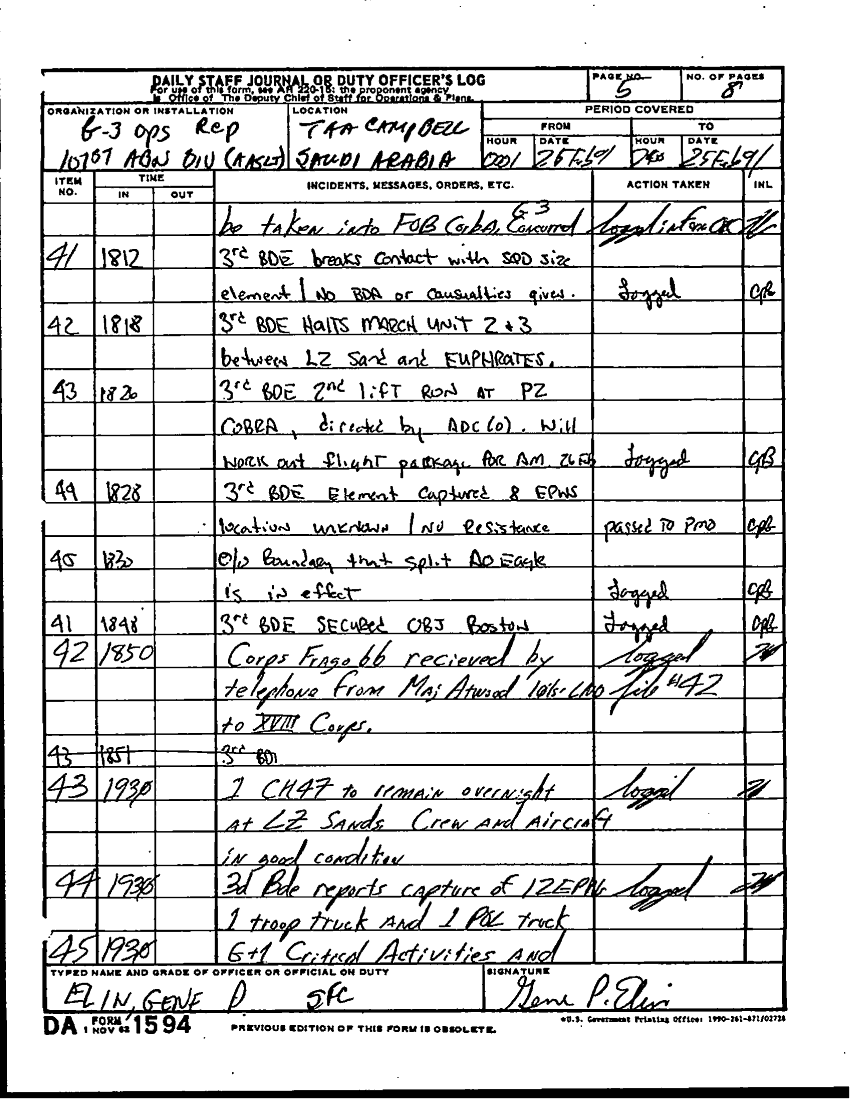 DAILY STAFF JOURNAL OR DUTY OFFICER'S LOG
For use of this form, see AR 220-15; the proponent agency
is Office of The Deputy Chief of Staff for Operations & Plans.
PAGE NO.
5
NO. OF PAGES
8
ORGANIZATION OR INSTALLATION
G-3 Ops Rep
101st ABN DIV (AASLT)
LOCATION
TAA CAMPBELL
SAUDI ARABIA
PERIOD COVERED
FROM TO
HOUR DATE HOUR DATE
0001 25 Feb 91 2400 25 Feb 91
ITEM NO. TIME IN OUT INCIDENTS, MESSAGES, ORDERS, ETC. ACTION TAKEN INL
be taken into FOB Cobra, G-3 Concurred
41 1812 3rd BDE breaks contact with SQD size
element / NO BDA or causualties given. Logged
42 1818 3rd BDE HALTS MARCH UNIT 2 & 3
between LZ Sand and EUPHRATES.
43 1820 3rd BDE 2nd lift RUN AT PZ
COBRA, directed by ADC(O). Will
work out flight package for AM 26 Feb Logged
44 1828 3rd BDE Element Captured 8 EPWs
location unknown / No Resistance passed to PMO
45 1830 O/O Boundary that split AO Eagle
is in effect Logged
41 1848 3rd BDE SECURED OBJ Boston Logged
42 1850 Corps Frago 66 recieved by logged
telephone from Maj Atwood 101st LNO file #42
to XVIII Corps.
43 1851 3rd BDE
43 1930 1 CH47 to remain overnight logged
At LZ SANDS. Crew AND Aircraft
in good condition
44 1930 3d Bde reports capture of 12 EPWs logged
1 troop truck AND 1 POL truck
45 1930 G+1 Critical Activities AND
TYPED NAME AND GRADE OF OFFICER OR OFFICIAL ON DUTY
ELIN, GENE P SFC
SIGNATURE
Gene P. Elin
DA FORM 1594
1 NOV 62
PREVIOUS EDITION OF THIS FORM IS OBSOLETE.
*U.S. Government Printing Office: 1990-261-871/02728